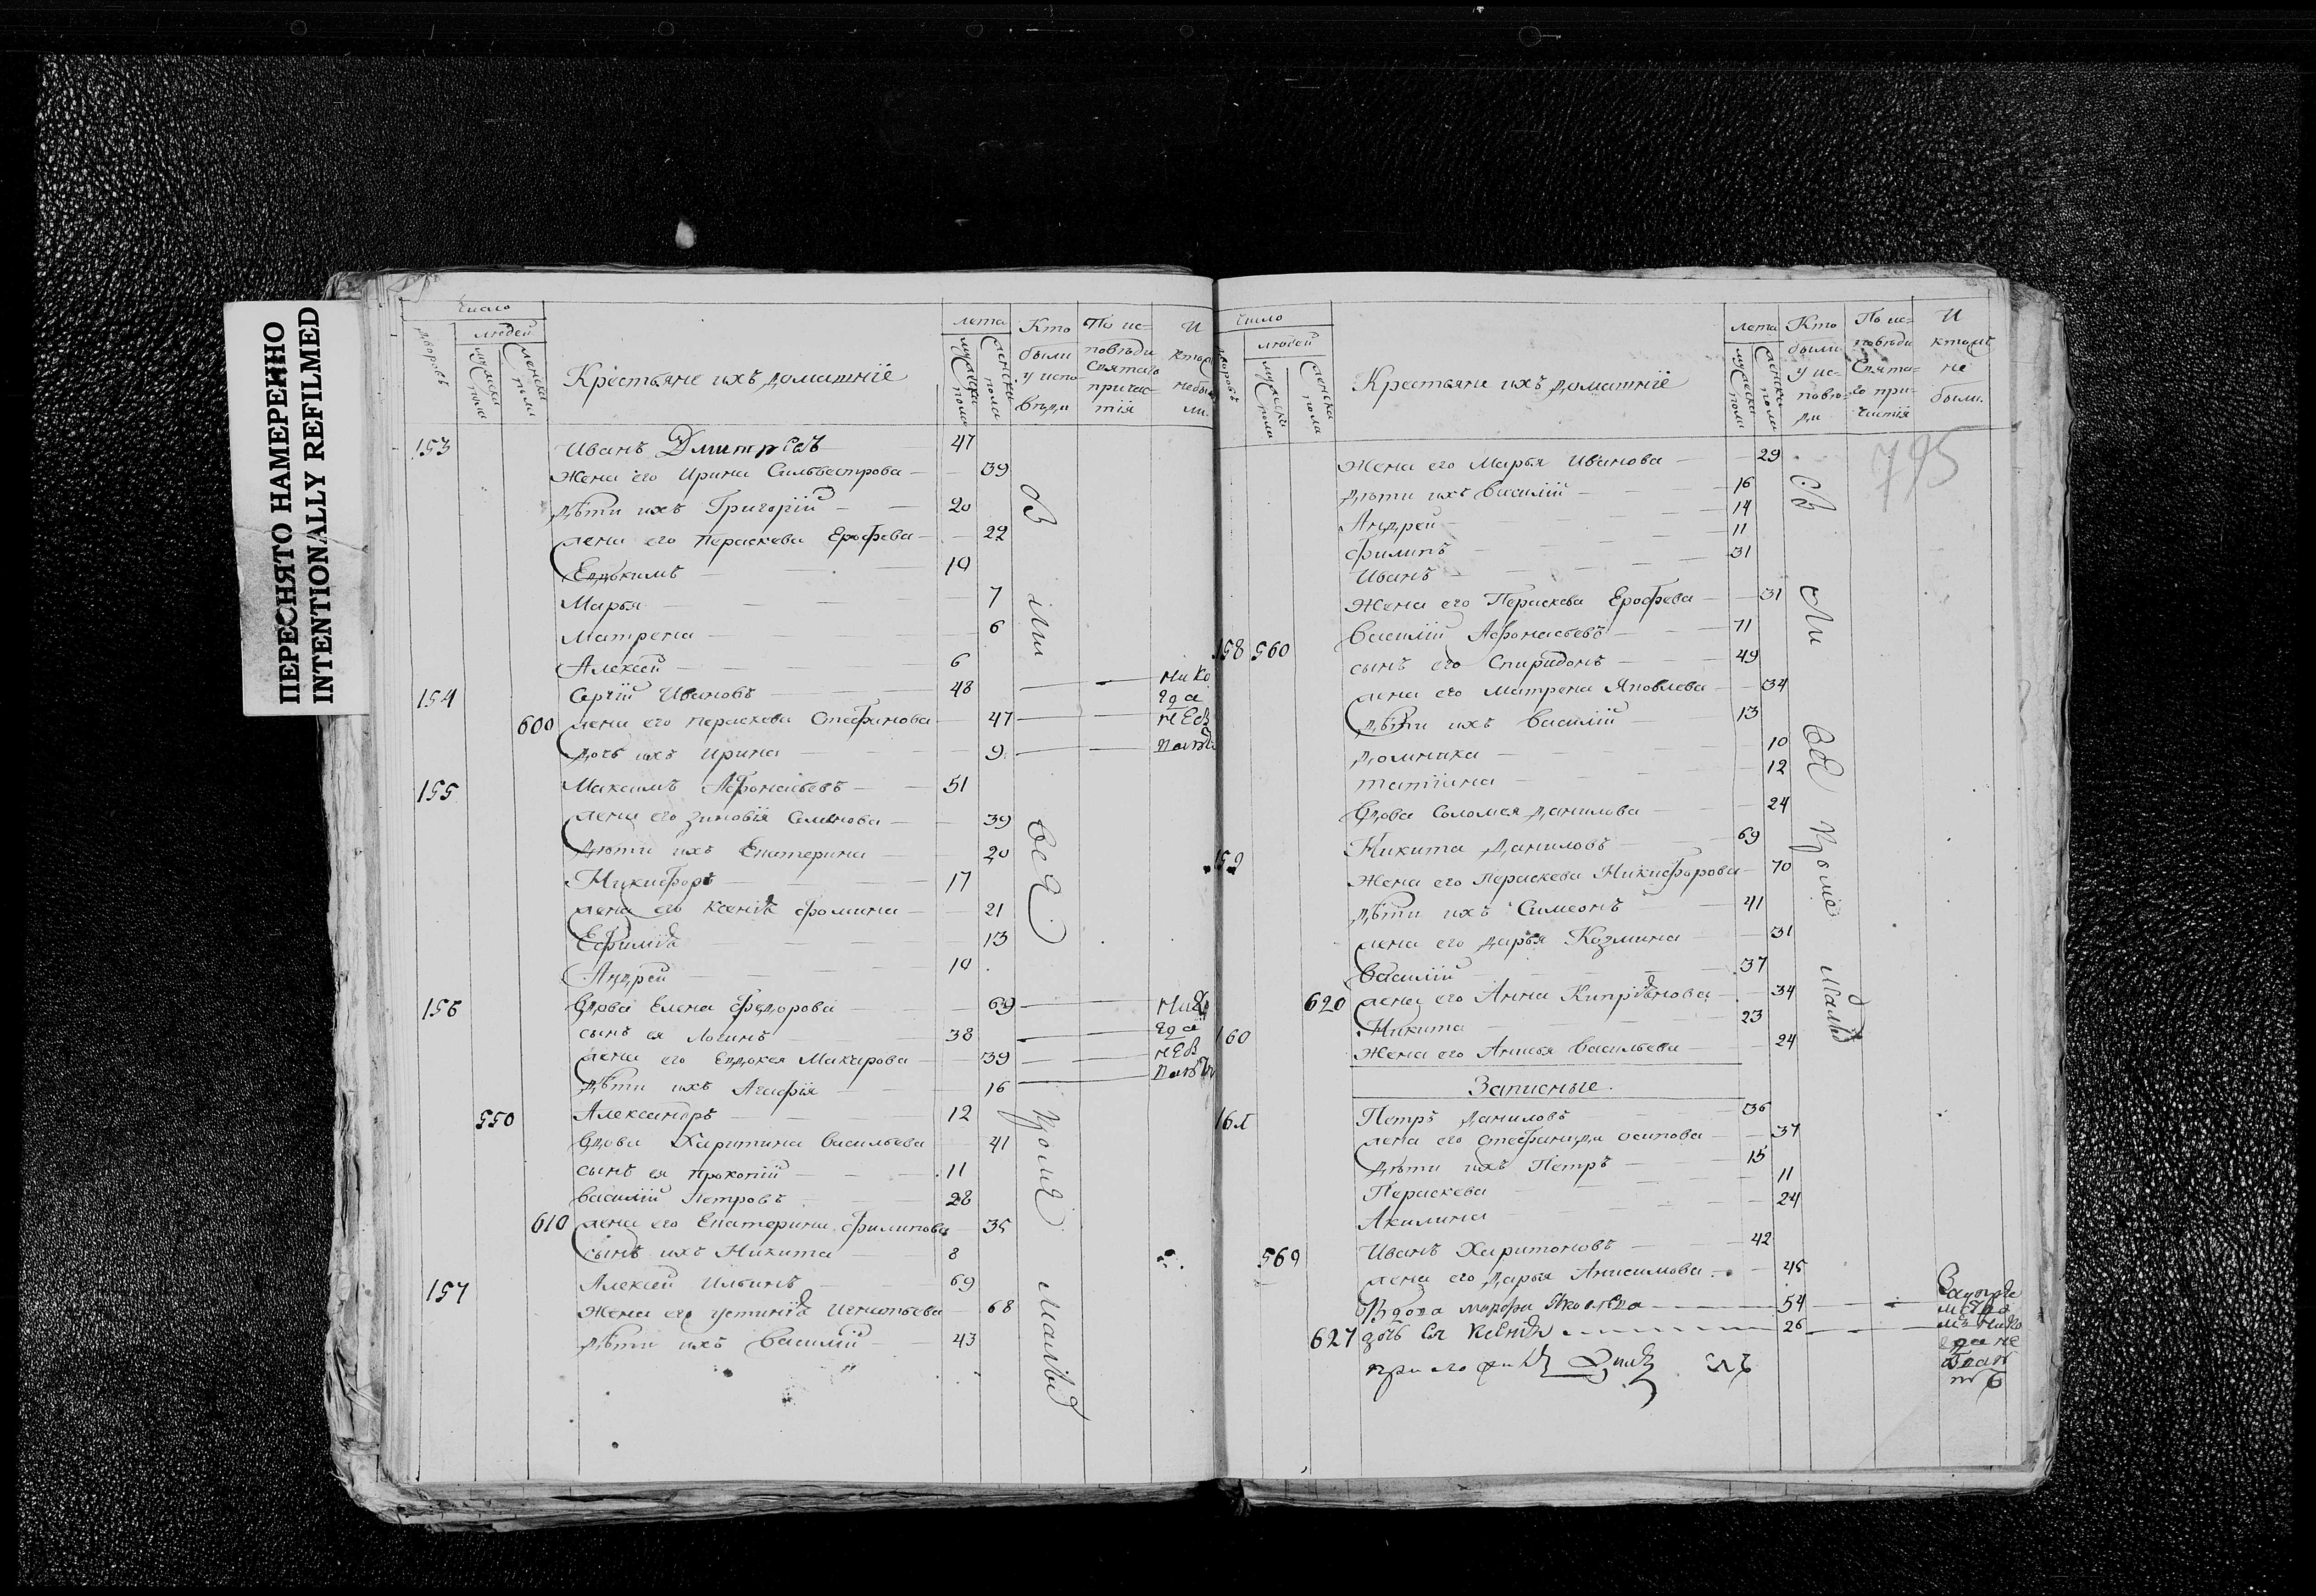 ПЕРЕСНЯТО НАМЕРЕННО
INTENTIONALLY REFILMED
Число
дворовъ
людей
мужеска пола
женска пола
Крестьяне ихъ домашнїе
лета
мужеска пола
женска пола
Кто были у исповѣди
По исповѣди святаго причастїя
И
153 Иванъ Дмитрїевъ 47
Жена его Ирина Сильвестрова 39
дѣти ихъ Григорїй 20
жена его Пераскева Ерофѣева 22
Евдокимъ 10
Марья 7
Матрена 6
Алексѣй 6
154 Сергїй Ивановъ 48
600 жена его Пераскева Стефанова 47
дочь ихъ Ирина 9
155 Максимъ Афонасьевъ 51
жена его Зиновїя Семенова 39
дѣти ихъ Екатерина 20
Никифоръ 17
жена его Ксенїя Фомина 21
Ефимїя 13
Андрей 10
156 Вдова Елена Федорова 69
сынъ ея Логинъ 38
жена его Евдокея Макарова 39
дѣти ихъ Агафїя 16
550 Александръ 12
Вдова Харитина Васильева 41
сынъ ея Прокопїй 11
Василїй Петровъ 28
610 жена его Екатерина Филипова 35
сынъ ихъ Никита 8
157 Алексѣй Ильинъ 69
Жена его Устинїя Игнатьева 68
дѣти ихъ Василїй 43
Число
дворовъ
людей
мужеска пола
женска пола
Крестьяне ихъ домашнїе
лета
мужеска пола
женска пола
Кто были у исповѣди
По исповѣди Святаго причастїя
И
не были
795
Жена его Марья Иванова 29
дѣти ихъ Василїй 16
Андрей 14
Филипъ 11
Иванъ 31
Жена его Пераскева Ерофѣева 31
158 560 Василїй Афонасьевъ 71
сынъ его Спиридонъ 49
жена его Матрена Яковлева 34
дѣти ихъ Василїй 13
Домника 10
Татїана 12
Вдова Соломея Данилова 24
159 Никита Даниловъ 69
Жена его Пераскева Никифорова 70
дѣти ихъ Симеонъ 41
жена его Дарья Козмина 31
Василїй 37
620 жена его Анна Кипрїянова 34
160 Никита 23
Жена его Анисья Васильева 24
Записные.
161 Петръ Даниловъ 36
жена его Стефанида Осипова 37
дѣти ихъ Петръ 15
Пераскева 11
Акилина 24
569 Иванъ Харитоновъ 42
жена его Дарья Анисимова 45
Вдова Марфа Яковлева 54
627 дочь ея Ксенїя 26